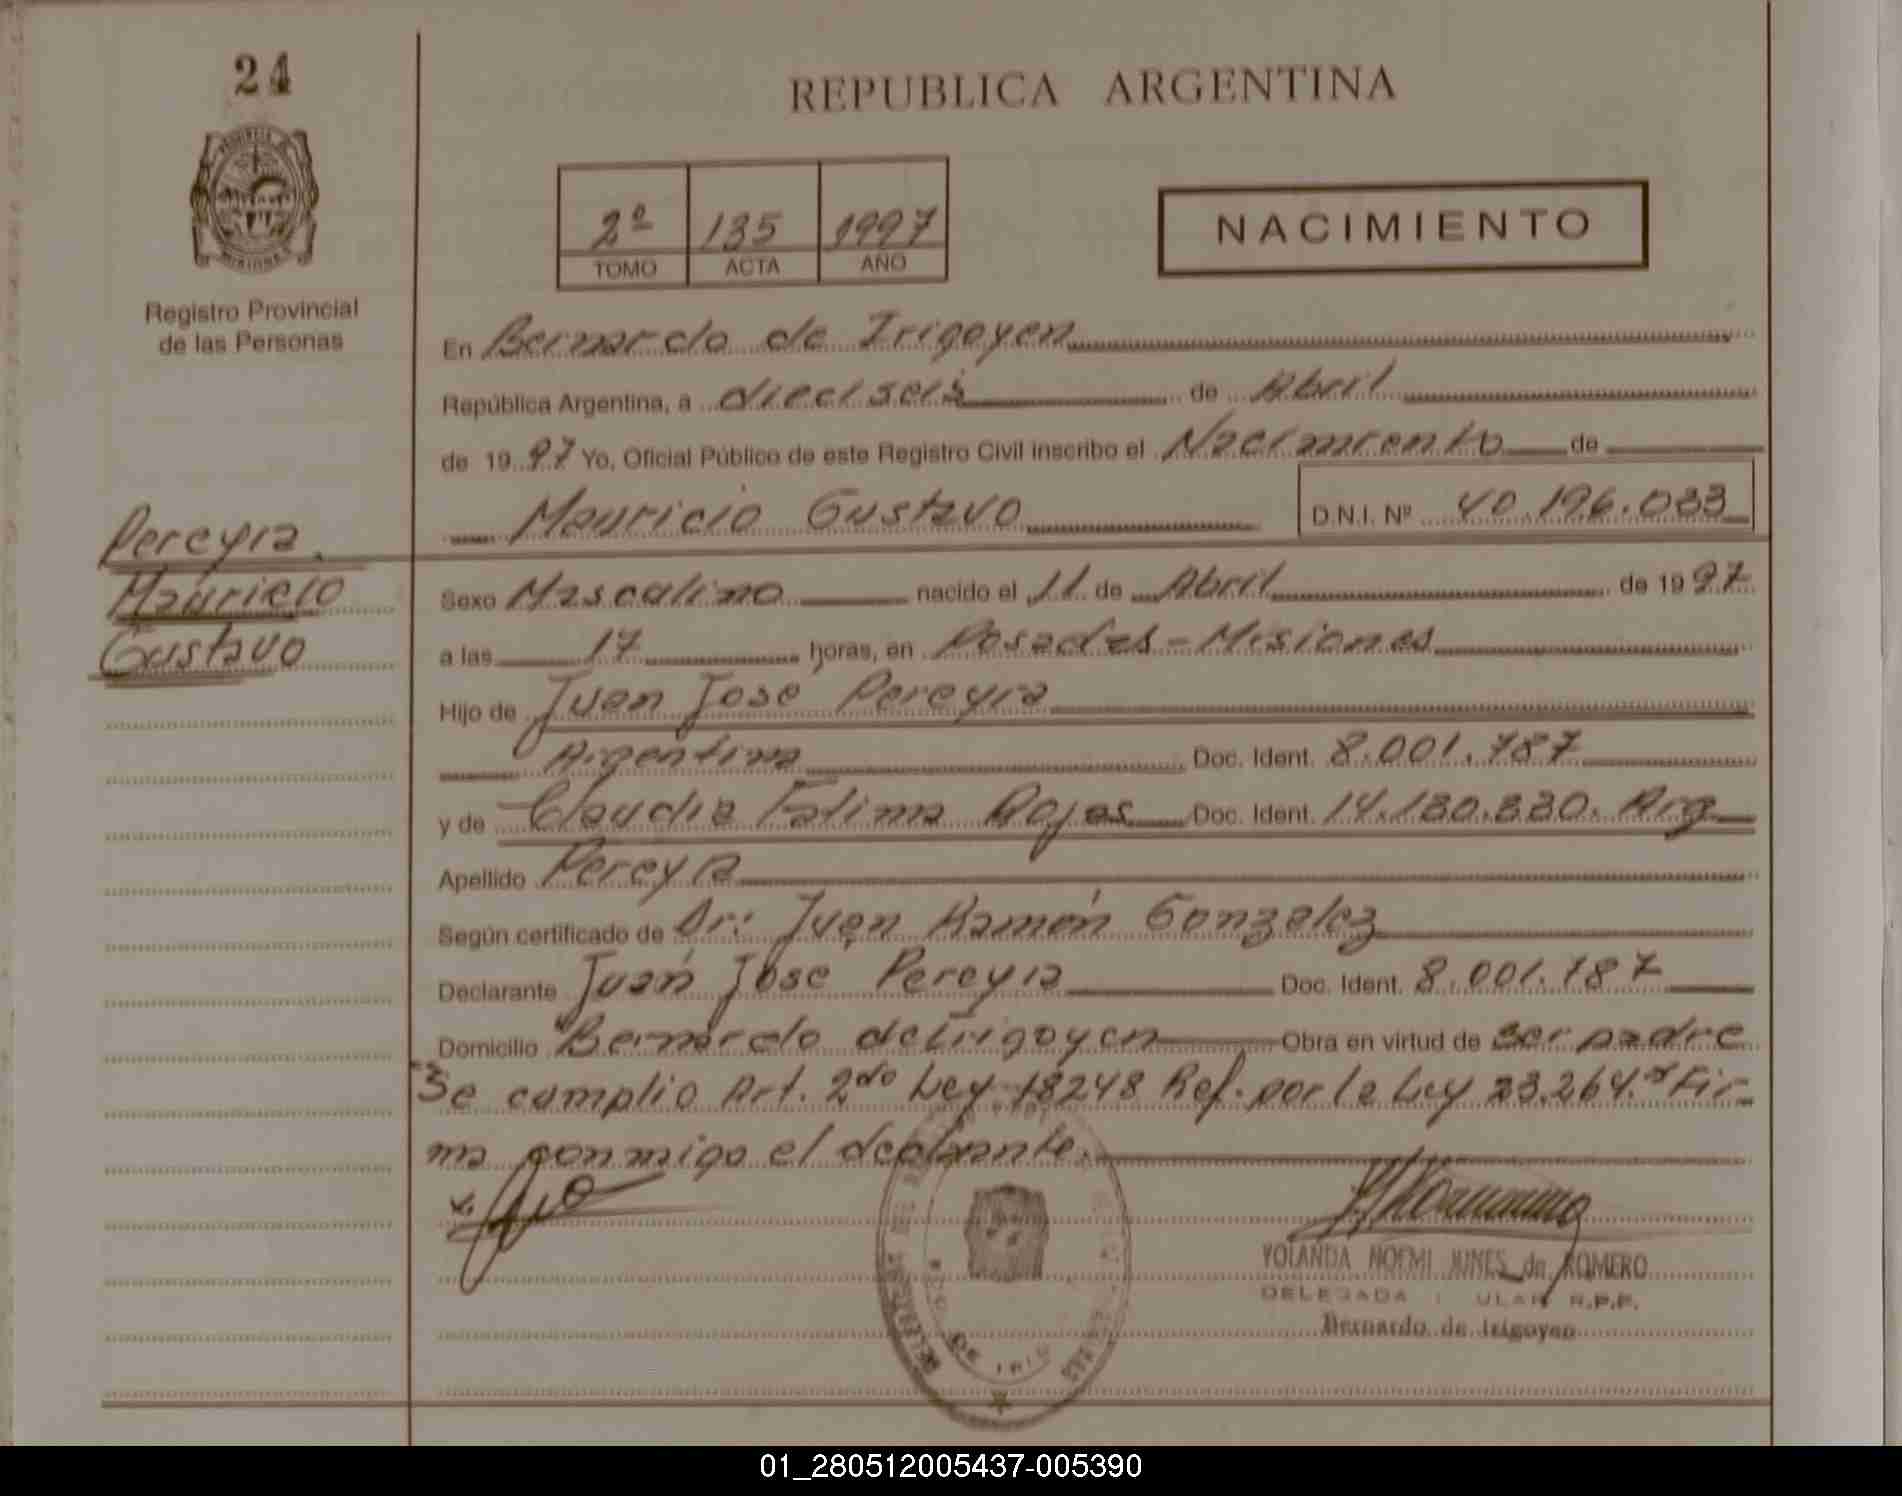 24
REPUBLICA ARGENTINA
2º 135 1997
TOMO ACTA AÑO
NACIMIENTO
Registro Provincial
de las Personas
En Bernardo de Irigoyen
República Argentina, a dieciseis de Abril
de 1997 Yo, Oficial Público de este Registro Civil inscribo el Nacimiento de
Mauricio Gustavo D.N.I. Nº 40.196.033
Pereyra
Mauricio
Gustavo
Sexo Masculino nacido el 11 de Abril de 1997
a las 17 horas, en Posadas - Misiones
Hijo de Juan Jose Pereyra
Argentina Doc. Ident. 8.001.787
y de Claudia Fatima Rojas Doc. Ident. Arg
Apellido Pereyra
Según certificado de Dr: Juan Ramón Gonzalez
Declarante Juan Jose Pereyra Doc. Ident. 8.001.787
Domicilio Bernardo de Irigoyen Obra en virtud de ser padre
Se cumplio Art. 2do Ley 18248 Ref. por la Ley 23.264. Fir-
ma conmigo el declarante.
YOLANDA NOEMI JUNES de ROMERO
DELEGADA R.P.P.
Bernardo de Irigoyen
01_280512005437-005390